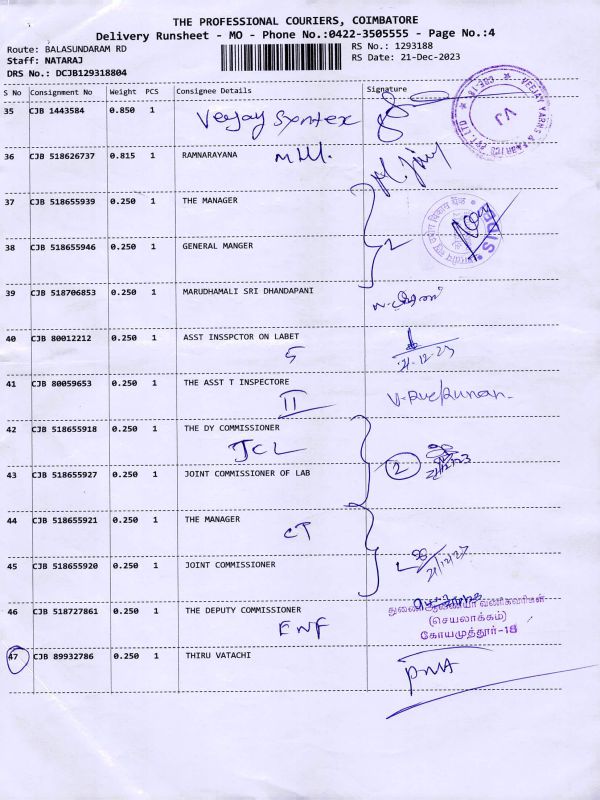 THE PROFESSIONAL COURIERS, COIMBATORE
Delivery Runsheet - MO - Phone No.:0422-3505555 - Page No.:4
Route: BALASUNDARAM RD
RS No.: 1293188
Staff: NATARAJ
RS Date: 21-Dec-2023
DRS No.: DCJB129318804
S No Consignment No Weight PCS Consignee Details Signature
35 CJB 1443584 0.850 1 Veejay Syntex
VEEJAY YARNS & FABRICS PVT. LTD * CBE-18 *
VJ
36 CJB 518626737 0.815 1 RAMNARAYANA Mill.
37 CJB 518655939 0.250 1 THE MANAGER
SIDBI
38 CJB 518655946 0.250 1 GENERAL MANGER 2
39 CJB 518706853 0.250 1 MARUDHAMALI SRI DHANDAPANI
40 CJB 80012212 0.250 1 ASST INSSPCTOR ON LABET
5 21-12-23
41 CJB 80059653 0.250 1 THE ASST T INSPECTORE
II
42 CJB 518655918 0.250 1 THE DY COMMISSIONER
JCL
2 21/12/23
43 CJB 518655927 0.250 1 JOINT COMMISSIONER OF LAB
44 CJB 518655921 0.250 1 THE MANAGER
CT
21/12/23
45 CJB 518655920 0.250 1 JOINT COMMISSIONER
46 CJB 518727861 0.250 1 THE DEPUTY COMMISSIONER
ENF
துணை ஆணையர் வணிகவரிகள்
(செயலாக்கம்)
கோயமுத்தூர்-18
47 CJB 89932786 0.250 1 THIRU VATACHI